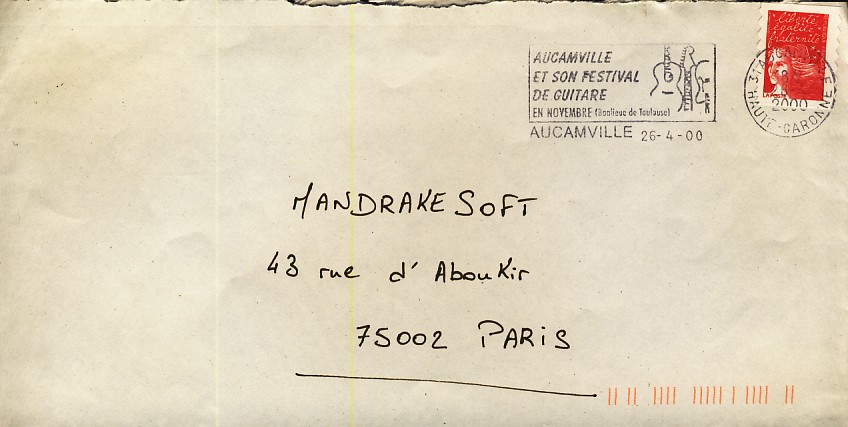 AUCAMVILLE
ET SON FESTIVAL
DE GUITARE
EN NOVEMBRE (Banlieue de Toulouse)
AUCAMVILLE 26-4-00
liberté
égalité
fraternité
LA POSTE
31
2000
HAUTE-GARONNE
MANDRAKE SOFT
43 rue d'Aboukir
75002 PARIS